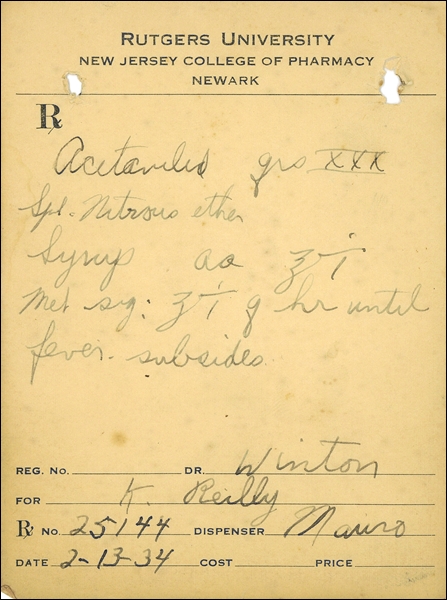 RUTGERS UNIVERSITY
NEW JERSEY COLLEGE OF PHARMACY
NEWARK
℞
Acetanilid grs XXX
Spt. Nitrous ether
Syrup aa ℥ i
Met sig: ʒ i q hr until
fever subsides
REG. NO. DR. Winton
FOR K. Reilly
℞ NO. 25144 DISPENSER Mauro
DATE 2-13-34 COST PRICE